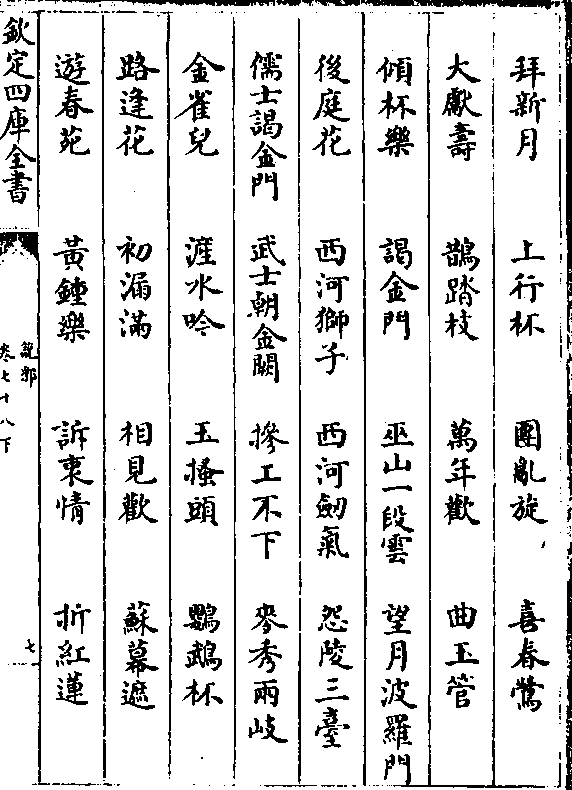 拜新月 上行杯 團亂旋 喜春鶯
大獻壽 鵲踏枝 萬年歡 曲玉管
傾杯樂 謁金門 巫山一段雲 望月波羅門
後庭花 西河獅子 西河劒氣 怨陵三臺
儒士謁金門 武士朝金闕 摻工不下 麥秀兩岐
金雀兒 滻水吟 玉搔頭 鸚鵡杯
路逢花 初漏滿 相見歡 蘇幕遮
遊春苑 黃鍾樂 訴衷情 折紅蓮
欽定四庫全書
說郛
卷七十八下
七